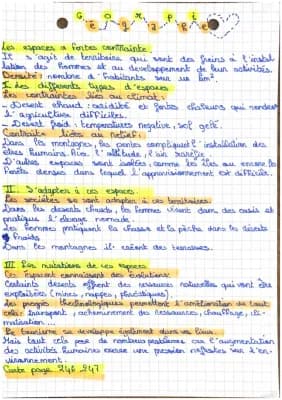 Les espaces à fortes contrainte.
Il s'agit de territoires qui sont des freins à l'instal
lation des hommes et au développement de leur activités.
Densité: nombre d'habitants sur un km².
I. Les différents types d'espaces
Les contraintes liées au climat.
- Desert chaud: aridité et fortes chaleurs qui rendent
l'agriculture difficiles.
- Desert froid: temperatures negative, sol gelé.
Contrainte liées au relief:
Dans les montagnes, les pentes compliquent l'installation des
êtres humains. l'altitude,
D'autres espaces sont isolées, comme les îles ou encore les
forêts denses dans lequel l'approvisionnement est difficile.
II. S'adapter à ces espaces.
Les sociétés se sont adapter à ces territoires.
Dans les deserts chauds, les hommes vivent dans des oasis et
pratique l'élevage nomade.
Les hommes pratiquent la chasse et la pêche dans les déserts
froids
Dans les montagnes il créent des terrasses.
III. Les mutations de ces espaces.
Ces espaces connaissent des évolutions.
Certains deserts offrent des ressources naturelles qui vont être
exploitées (mines,
Les progrès technologiques permettent l'amélioration de tout
cela: transport, acheminement des ressources, chauffage, cli-
matisation ...
Le tourisme se developpe également dans ces lieux.
Mais tout cela pose de nombreux problèmes car l'augmentation
des activités humaines exerce une pression sur l'en-
vironnement.
Carte page 246-247